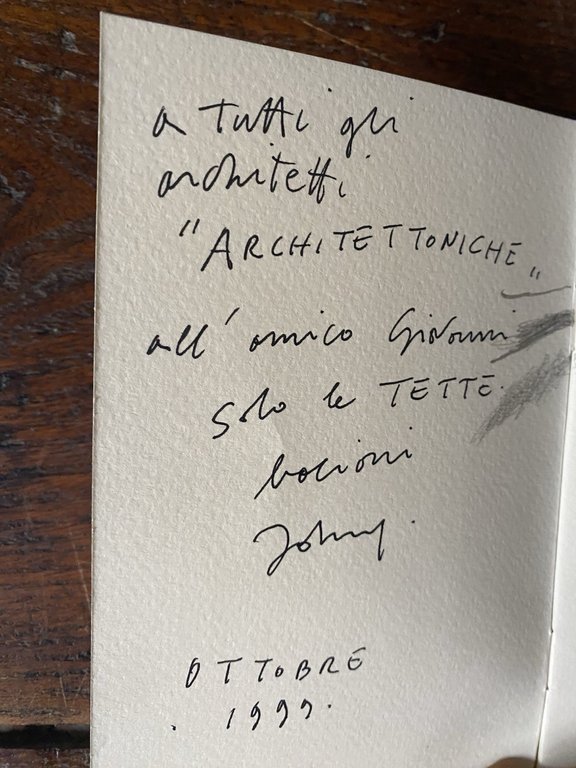 a tutti gli
architetti
"ARCHITETTONICHE"
all'amico Giovanni
solo le TETTE.
bacioni
Johny.
OTTOBRE
. 1999.